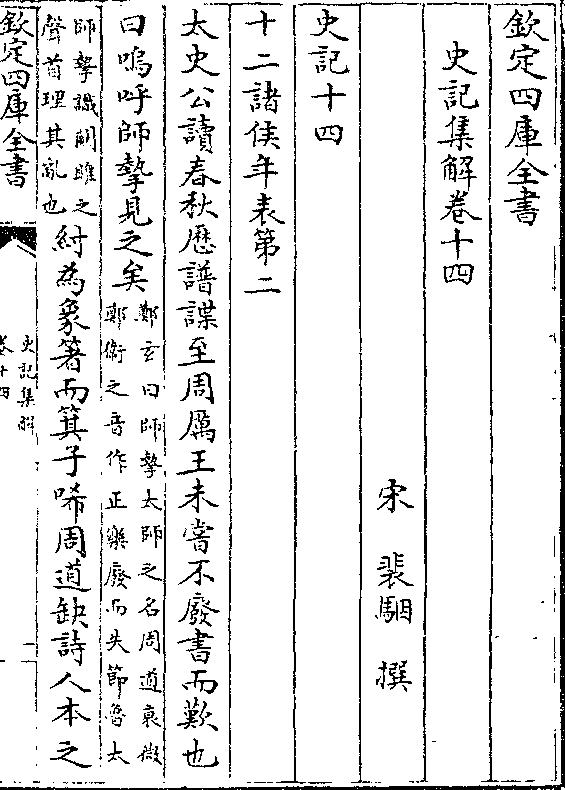 欽定四庫全書
史記集解卷十四
宋 裴駰 撰
史記十四
十二諸侯年表第二
太史公讀春秋厯譜諜至周厲王未嘗不廢書而歎也
曰嗚呼師摯見之矣
鄭玄曰師摯太師之名周道衰微
鄭衛之音作正樂廢而失節魯太
師摯識關雎之
聲首理其亂也
紂為象箸而箕子唏周道缺詩人本之
欽定四庫全書
史記集解
卷十四
一